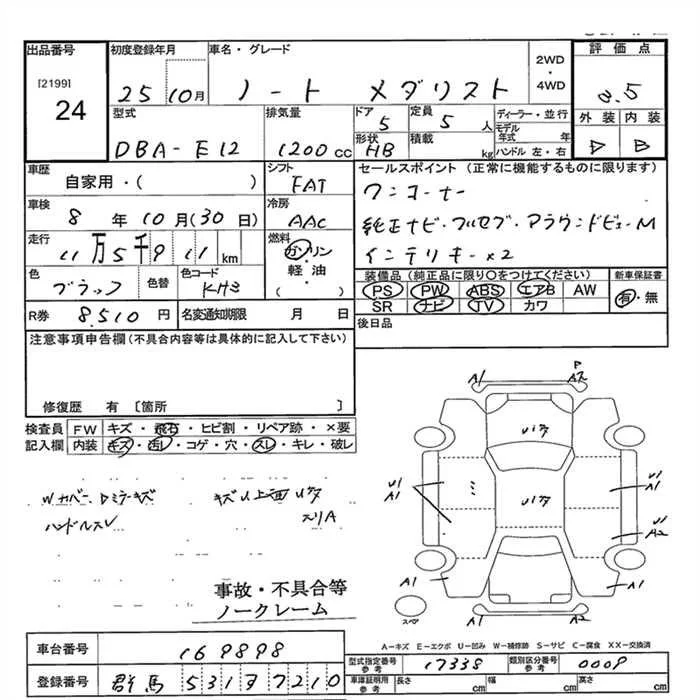 出品番号
[2199]
24
初度登録年月
25 10月
車名・グレード
ノート メダリスト
2WD
・
4WD
評価点
3.5
外装 内装
D B
型式
DBA-E12
排気量
1200cc
ドア
5
定員
5人
形状
HB
積載
kg
ディーラー・並行
モデル年式 年
ハンドル 左・右
車歴
自家用・( )
シフト
FAT
車検
8年10月(30日)
冷房
AAC
走行
11万5千9 11km
燃料
ガソリン
・
軽・油
( )
色
ブラック
色替
色コード
KH3
R券
8,510円
名変通知期限 月 日
セールスポイント (正常に機能するものに限ります)
ワンオーナー
純正ナビ・フルセグ・アラウンドビューM
インテリキー×2
装備品(純正品に限り○をつけてください)
PS PW ABS エアB AW
SR ナビ TV カワ
新車保証書
有・無
後日品
注意事項申告欄(不具合内容等は具体的に記入して下さい)
修復歴 有〔箇所 〕
検査員記入欄
FW キズ・飛石・ヒビ割・リペア跡・×要
内装 キズ・汚レ・コゲ・穴・スレ・キレ・破レ
ハンドルスレ
キズU上画
スリA
事故・不具合等
ノークレーム
A1 P A2
U1 A1
U1 A1
U1 A2
A1 A1
A1 A2
スペア
A-キズ E-エクボ U-凹み W-補修跡 S-サビ C-腐食 XX-交換済
車台番号
169898
登録番号
群馬 531 7210
型式指定番号 参考
17338
類別区分番号 参考
0009
車庫証明用 参考
長さ cm 幅 cm 高さ cm